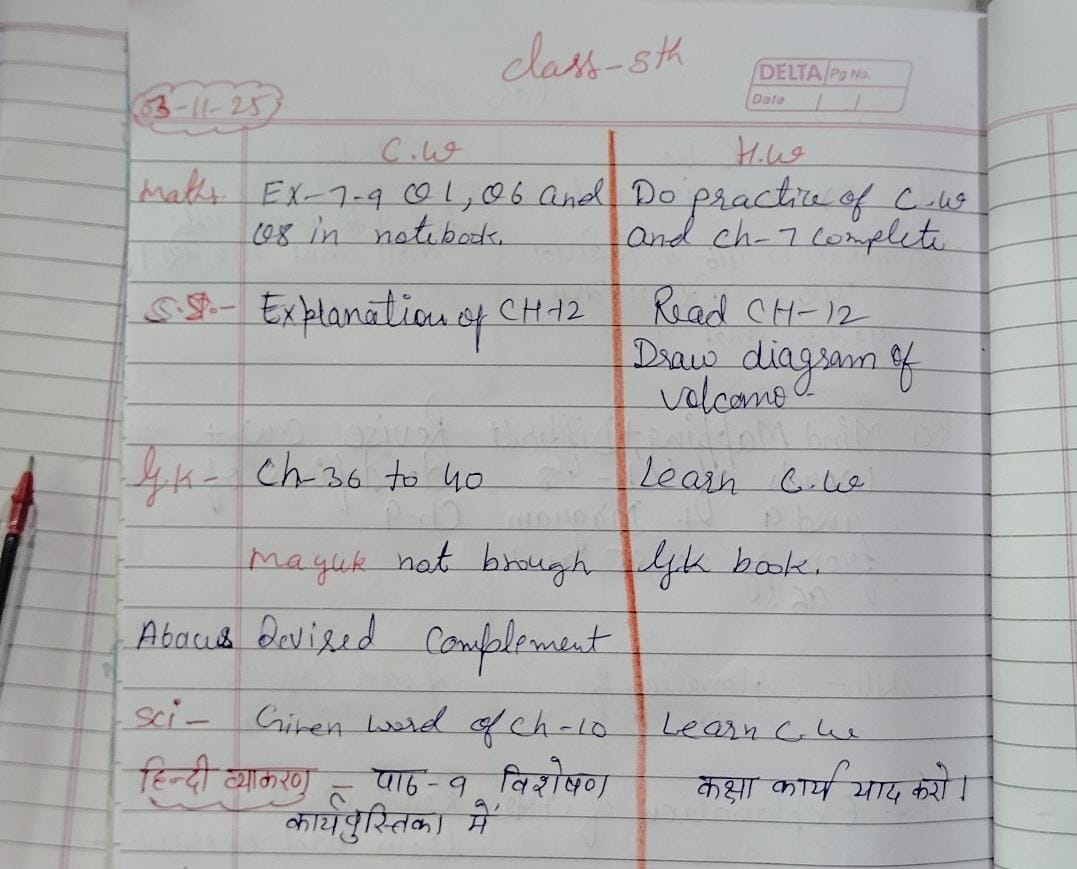 Class-5th
DELTA Pg No.
Date
03-11-25
C.W H.W
Maths. Ex-7.9 Q1, Q6 and Do practice of C.W
Q8 in notebook. and ch-7 complete
S.St.- Explanation of CH-12 Read CH-12
Draw diagram of
volcano-
GK- Ch-36 to 40 Learn C.W
Mayuk not brough GK book.
Abacus Revised Complement
Sci- Given word of ch-10 Learn C.W
हिन्दी व्याकरण - पाठ-9 विशेषण कक्षा कार्य याद करो।
कार्यपुस्तिका में